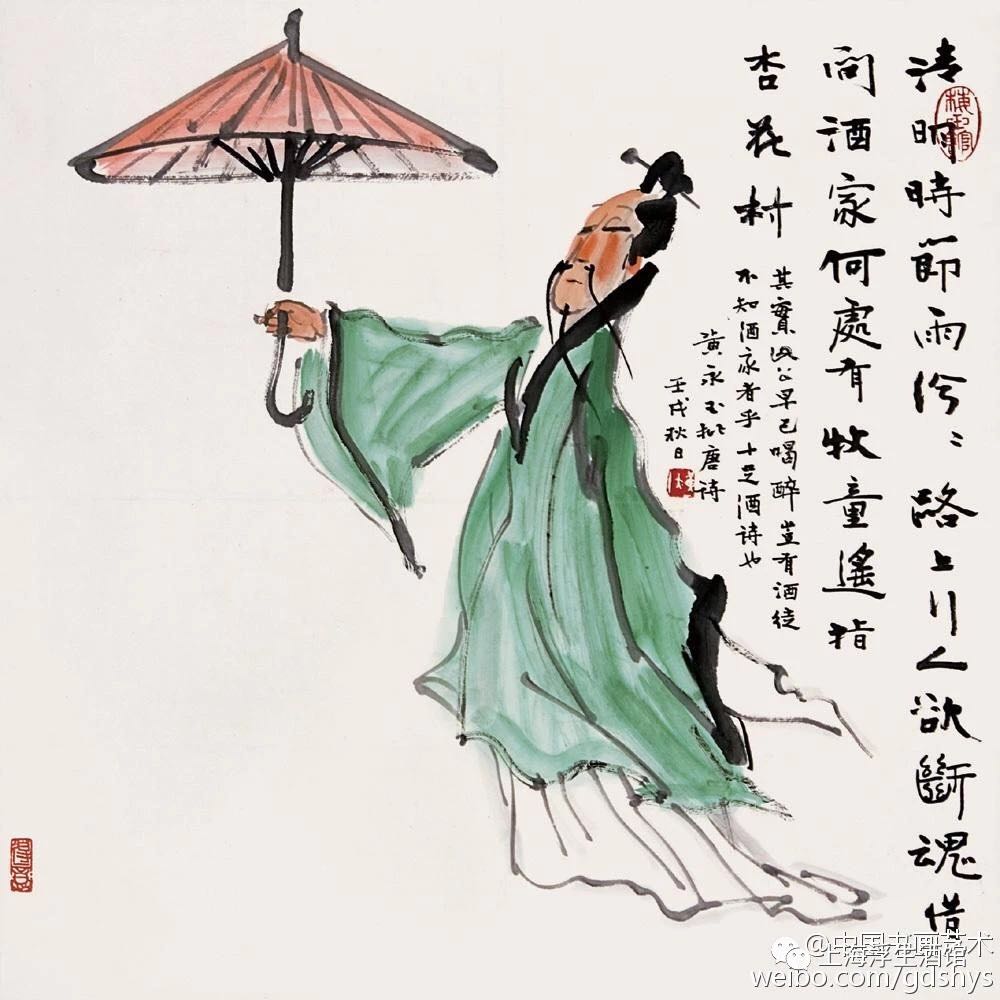 清明時節雨紛〻路上行人欲斷魂借
问酒家何處有牧童遙指
杏花村
其實此公早已喝醉豈有酒徒
不知酒家者乎酒诗也
黄永玉批唐诗
壬戌秋日
@中国书画艺术
上海浮生酒馆
weibo.com/gdshys